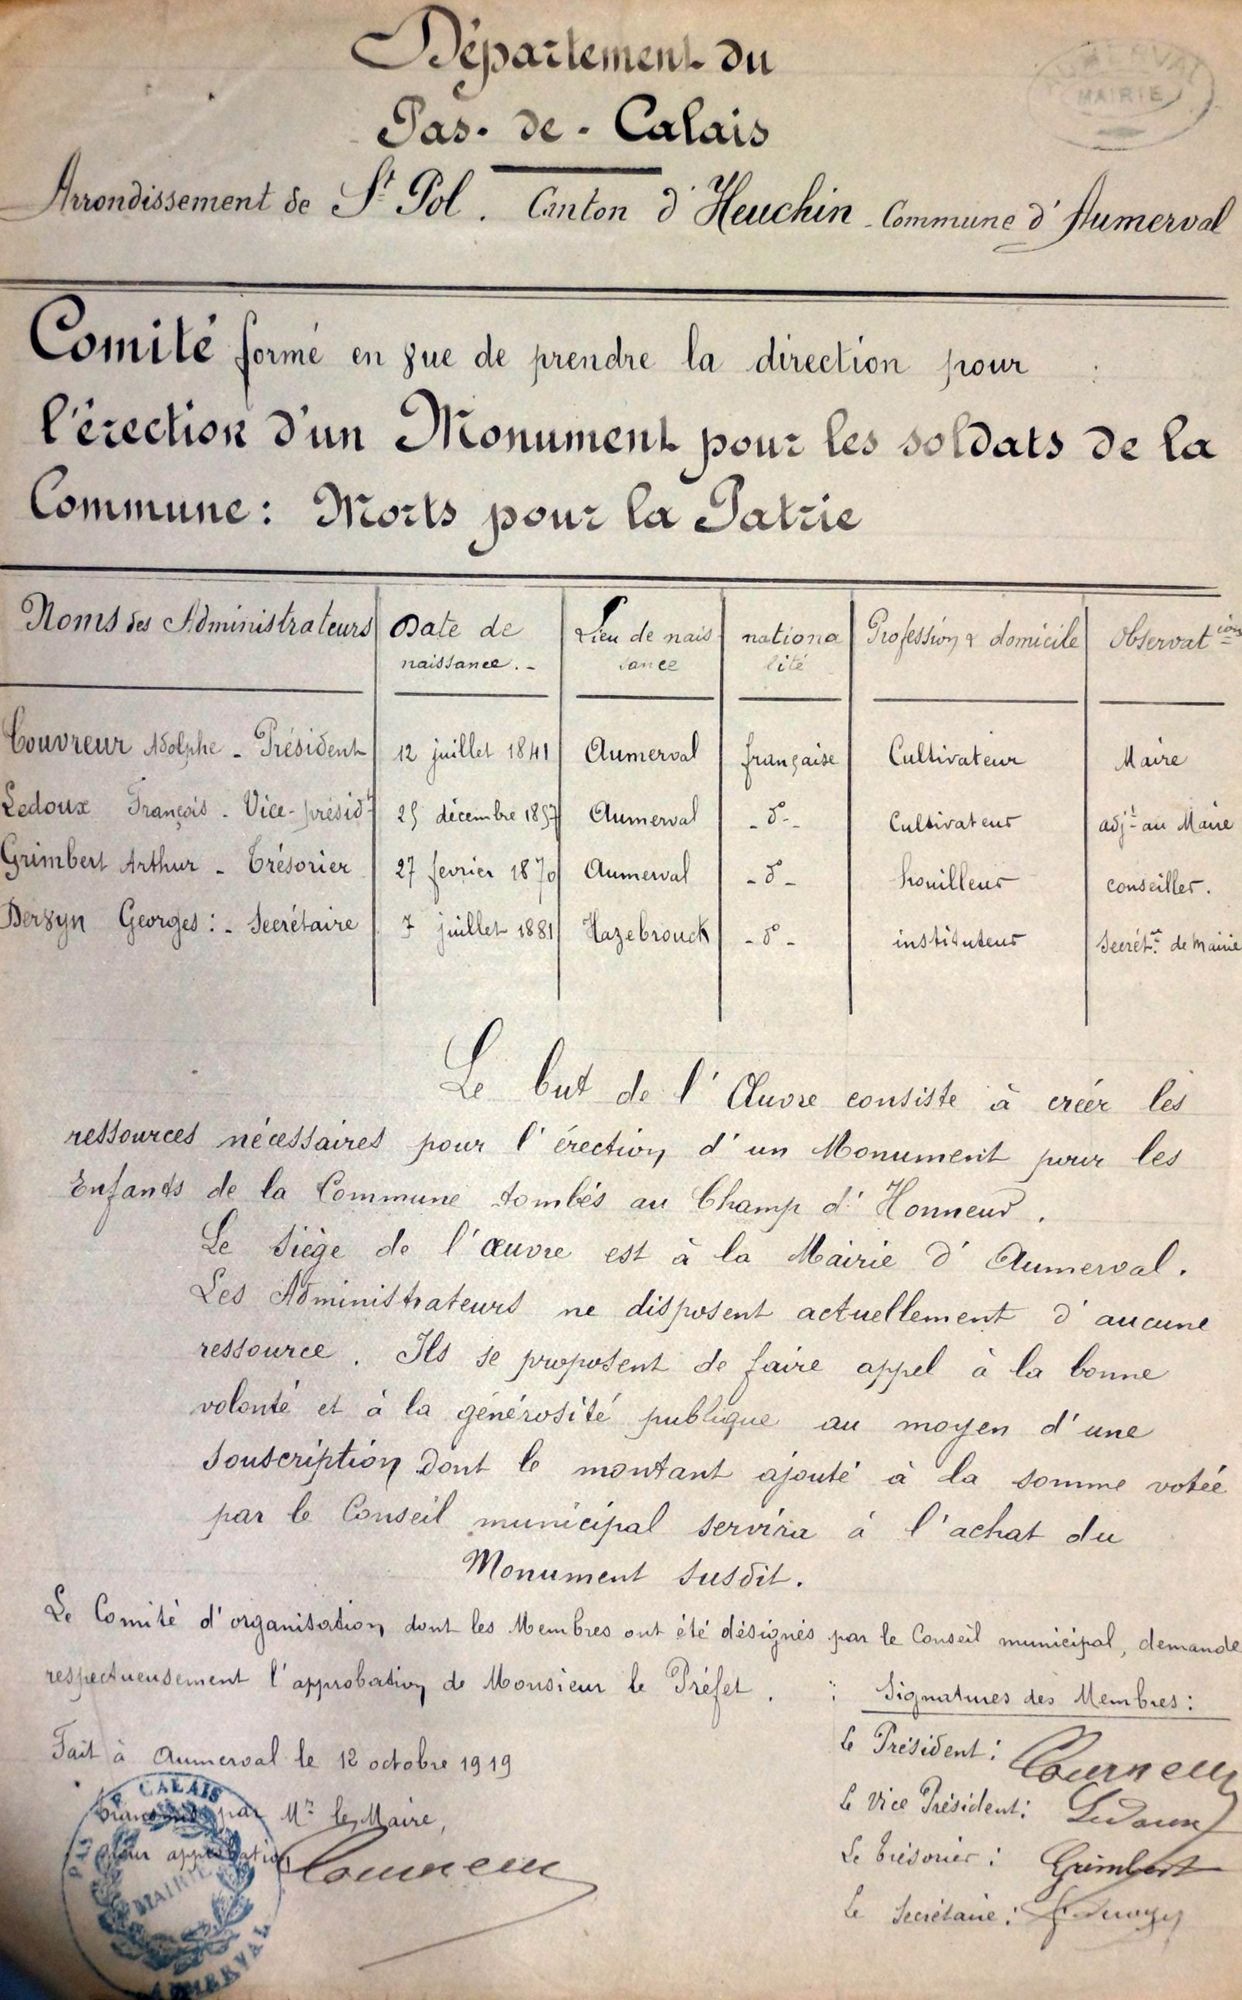 Département du
Pas-de-Calais
AUMERVAL
MAIRIE
Arrondissement de St Pol. Canton d'Heuchin - Commune d'Aumerval
Comité formé en vue de prendre la direction pour
l'érection d'un Monument pour les soldats de la
Commune : Morts pour la Patrie
Noms des Administrateurs | Date de naissance. - | Lieu de naissance | nationalité | Profession & domicile | Observations
Couvreur Adolphe - Président | 12 juillet 1841 | Aumerval | française | Cultivateur | Maire
Ledoux François - Vice-présidt | 25 décembre 1857 | Aumerval | - do - | Cultivateur | adjt au Maire
Grimbert Arthur - Trésorier | 27 fevrier 1870 | Aumerval | - do - | houilleur | conseiller.
Dervyn Georges : - Secrétaire | 7 juillet 1881 | Hazebrouck | - do - | instituteur | Secrétre de Mairie
Le but de l'Œuvre consiste à créer les
ressources nécessaires pour l'érection d'un Monument pour les
Enfants de la Commune tombés au Champ d'Honneur.
Le siège de l'œuvre est à la Mairie d'Aumerval.
Les Administrateurs ne disposent actuellement d'aucune
ressource. Ils se proposent de faire appel à la bonne
volonté et à la générosité publique au moyen d'une
souscription dont le montant ajouté à la somme votée
par le Conseil municipal servira à l'achat du
Monument susdit.
Le Comité d'organisation dont les Membres ont été désignés par le Conseil municipal, demande
respectueusement l'approbation de Monsieur le Préfet. : Signatures des Membres :
Fait à Aumerval le 12 octobre 1919
Le Président : Couvreur
par Mr le Maire,
Le Vice Président : Ledoux
pour approbation
Couvreur
Le Trésorier : Grimbert
Le Secrétaire :
PAS DE CALAIS
MAIRIE
AUMERVAL